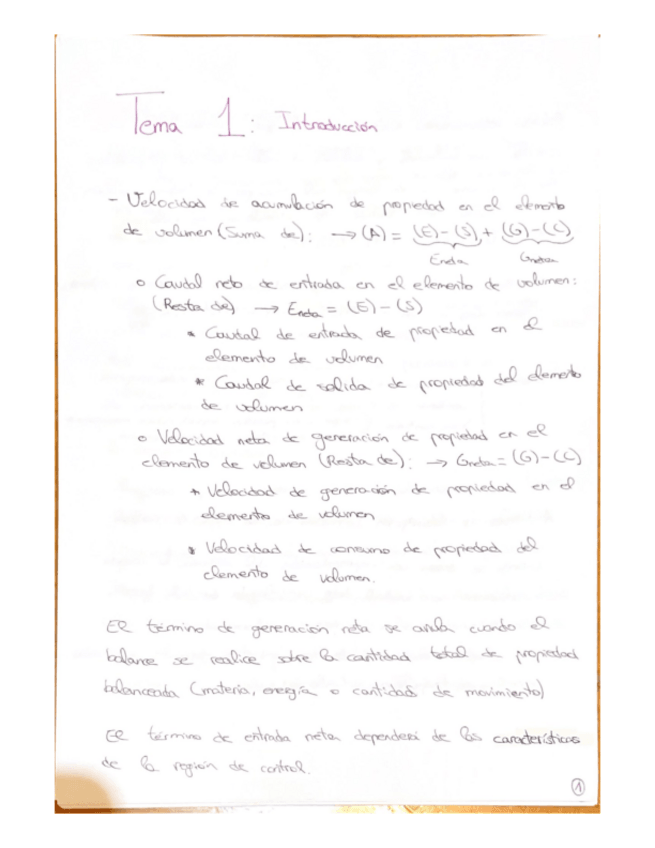 Tema 1: Introducción
- Velocidad de acumulación de propiedad en el elemento
de volumen (Suma de): → (A) = (E)-(S) + (G)-(C)
Eneta Gneta
o Caudal neto de entrada en el elemento de volumen:
(Resta de) → Eneta = (E) - (S)
* Caudal de entrada de propiedad en el
elemento de volumen
* Caudal de salida de propiedad del elemento
de volumen
o Velocidad neta de generación de propiedad en el
elemento de volumen (Resta de): → Gneta = (G)-(C)
* Velocidad de generación de propiedad en el
elemento de volumen
* Velocidad de consumo de propiedad del
elemento de volumen.
El término de generación neta se anula cuando el
balance se realice sobre la cantidad total de propiedad
balanceada (materia, energía o cantidad de movimiento)
El término de entrada neta dependerá de las características
de la región de control.
1